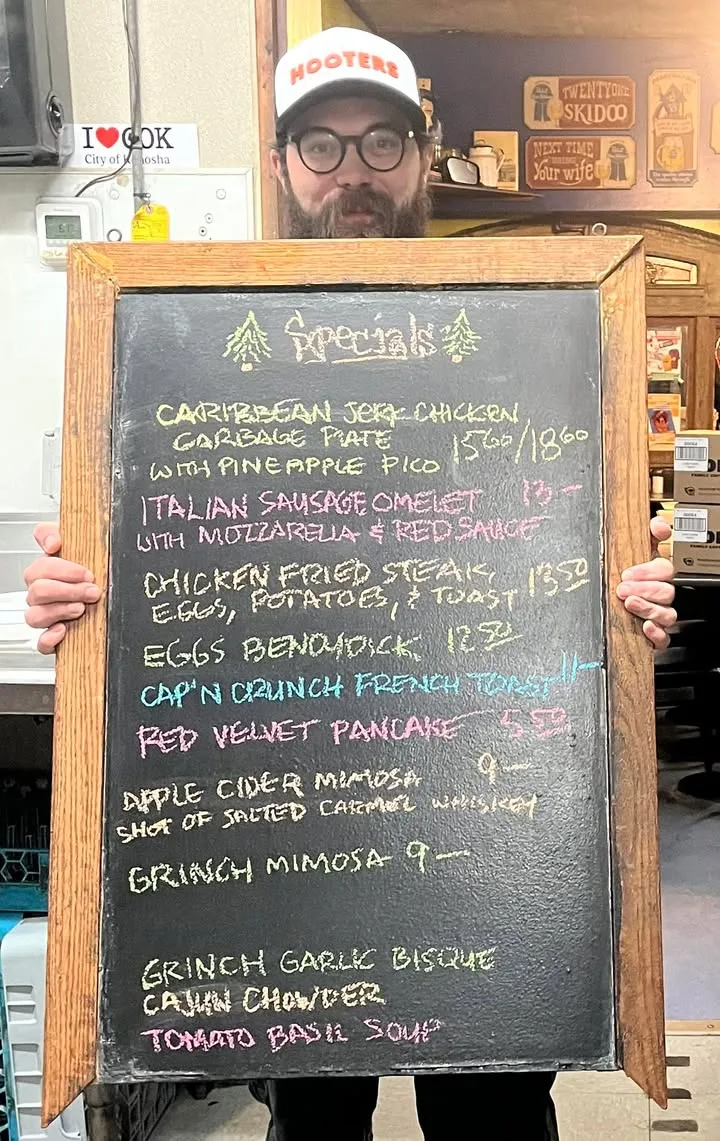 HOOTERS
I ❤ COOK
City of Kenosha
TWENTYONE
SKIDOO
NEXT TIME
BRING
Your wife
Specials
CARIBBEAN JERK CHICKEN
GARBAGE PLATE 15⁶⁰/18⁶⁰
WITH PINEAPPLE PICO
ITALIAN SAUSAGE OMELET 13-
WITH MOZZARELLA & RED SAUCE
CHICKEN FRIED STEAK, 13⁵⁰
EGGS, POTATOES, & TOAST
EGGS BENDYDICK 12⁵⁰
CAP'N CRUNCH FRENCH TOAST 11-
RED VELVET PANCAKE 5⁵⁰
APPLE CIDER MIMOSA 9-
SHOT OF SALTED CARMEL WHISKEY
GRINCH MIMOSA 9-
GRINCH GARLIC BISQUE
CAJUN CHOWDER
TOMATO BASIL SOUP